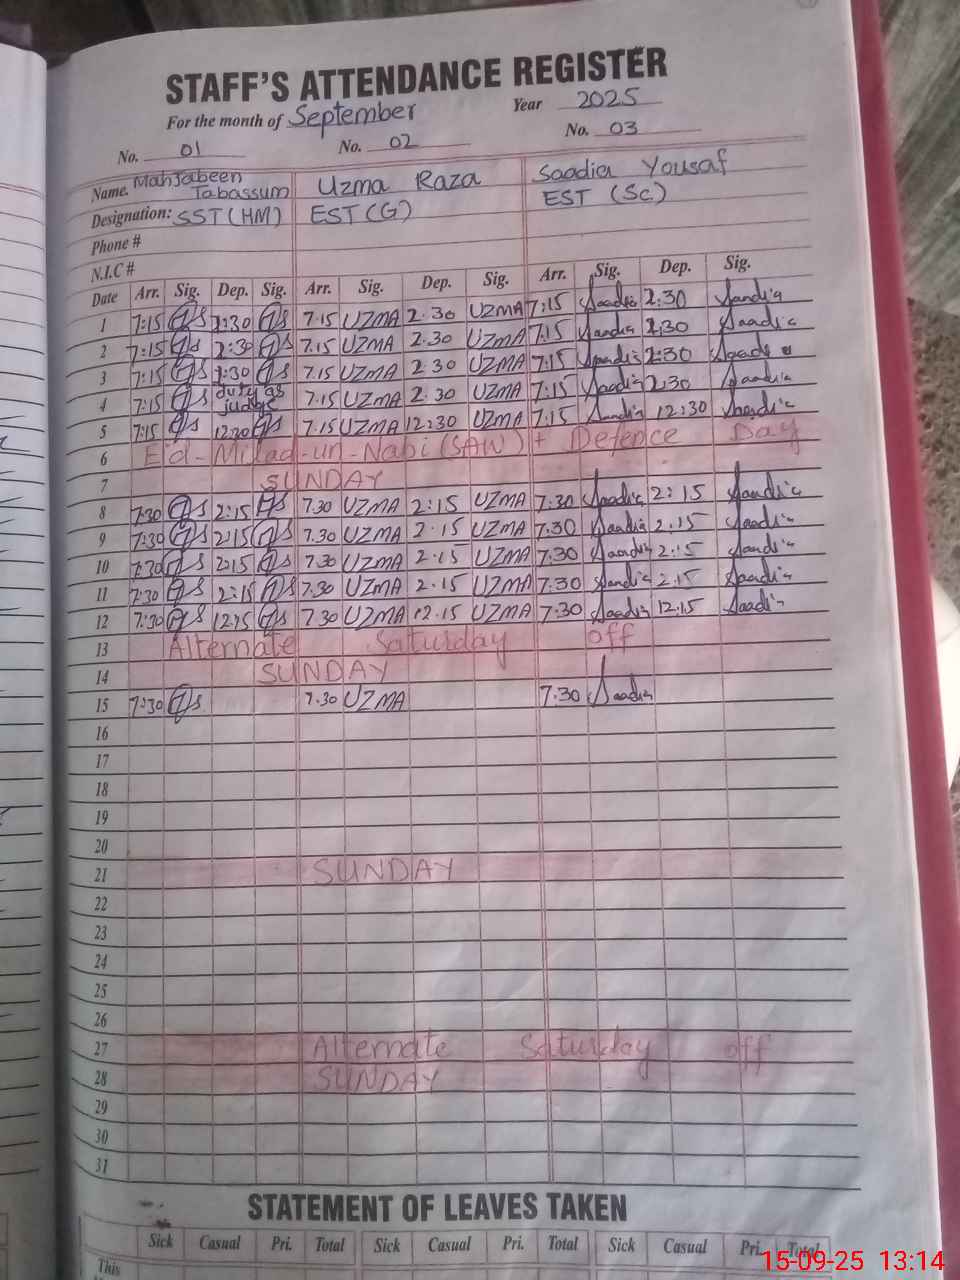 STAFF'S ATTENDANCE REGISTER
For the month of September Year 2025
No. 01 No. 02 No. 03
Name. Mahjabeen Tabassum Uzma Raza Saadia Yousaf
Designation: SST (HM) EST (G) EST (Sc)
Phone #
N.I.C #
Date Arr. Sig. Dep. Sig. Arr. Sig. Dep. Sig. Arr. Sig. Dep. Sig.
1 7:15 2:30 7.15 UZMA 2.30 UZMA 7:15 Saadia 2:30 Saadia
2 7:15 2:30 7.15 UZMA 2.30 UZMA 7:15 Saadia 2:30 Saadia
3 7:15 2:30 7.15 UZMA 2.30 UZMA 7:15 Saadia 2:30 Saadia
4 7:15 duty as judge 7.15 UZMA 2.30 UZMA 7:15 Saadia 2:30 Saadia
5 7:15 12:30 7.15 UZMA 12:30 UZMA 7:15 Saadia 12:30 Saadia
6 Eid-Milad-un-Nabi (SAW) + Defence Day
7 SUNDAY
8 7:30 2:15 7.30 UZMA 2:15 UZMA 7:30 Saadia 2:15 Saadia
9 7:30 2:15 7.30 UZMA 2.15 UZMA 7:30 Saadia 2:15 Saadia
10 7:30 2:15 7.30 UZMA 2.15 UZMA 7:30 Saadia 2:15 Saadia
11 7:30 2:15 7.30 UZMA 2.15 UZMA 7:30 Saadia 2.15 Saadia
12 7:30 12:15 7.30 UZMA 12.15 UZMA 7:30 Saadia 12:15 Saadia
13 Alternate Saturday off
14 SUNDAY
15 7:30 7.30 UZMA 7.30 Saadia
16
17
18
19
20
21 SUNDAY
22
23
24
25
26
27 Alternate Saturday off
28 SUNDAY
29
30
31
STATEMENT OF LEAVES TAKEN
Sick Casual Pri. Total Sick Casual Pri. Total Sick Casual Pri. Total
This
15-09-25 13:14